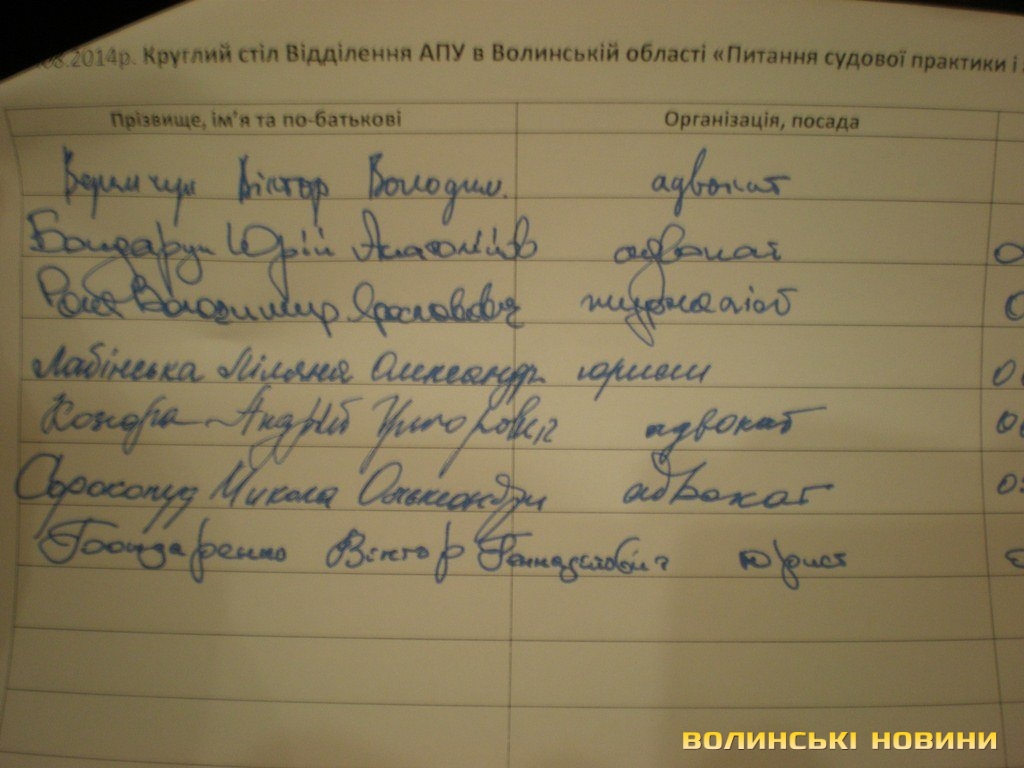 .08.2014р. Круглий стіл Відділення АПУ в Волинській області «Питання судової практики і
Прізвище, ім'я та по-батькові Організація, посада
Віктор Володим. адвокат
Бондарук Юрій Анатолійов адвокат
Володимир Ярославович журналіст
Лабінська Ліляна Олександр юрист
Андрій Григорович адвокат
Сорокопуд Микола Олександр адвокат
Гондаренко Віктор Геннадійович юрист
ВОЛИНСЬКІ НОВИНИ